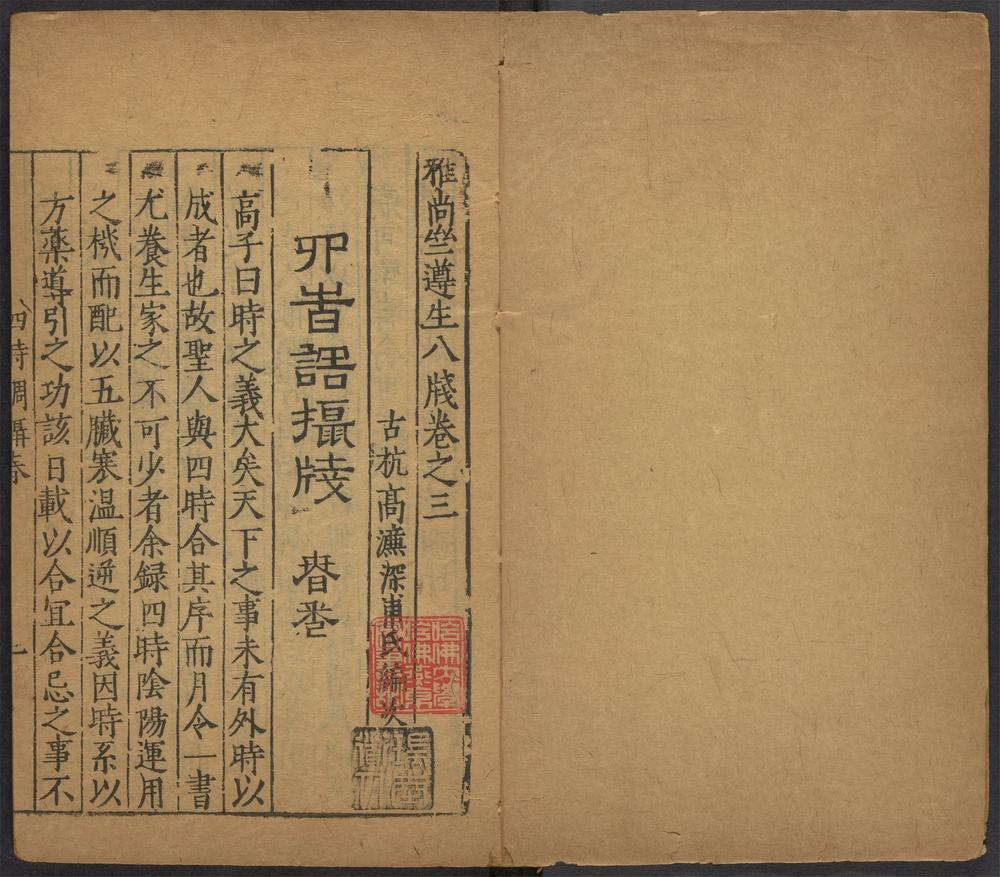 雅尚𥫗遵生八牋卷之三
古杭高濂深甫氏編次
四時調攝牋 春卷
高子曰時之義大矣天下之事未有外時以
成者也故聖人與四時合其序而月令一書
尤養生家之不可少者余録四時陰陽運用
之機而配以五臟寒温順逆之義因時系以
方藥導引之功該日載以合宜合忌之事不
四時調攝春 一
哈佛大學
哈佛燕京